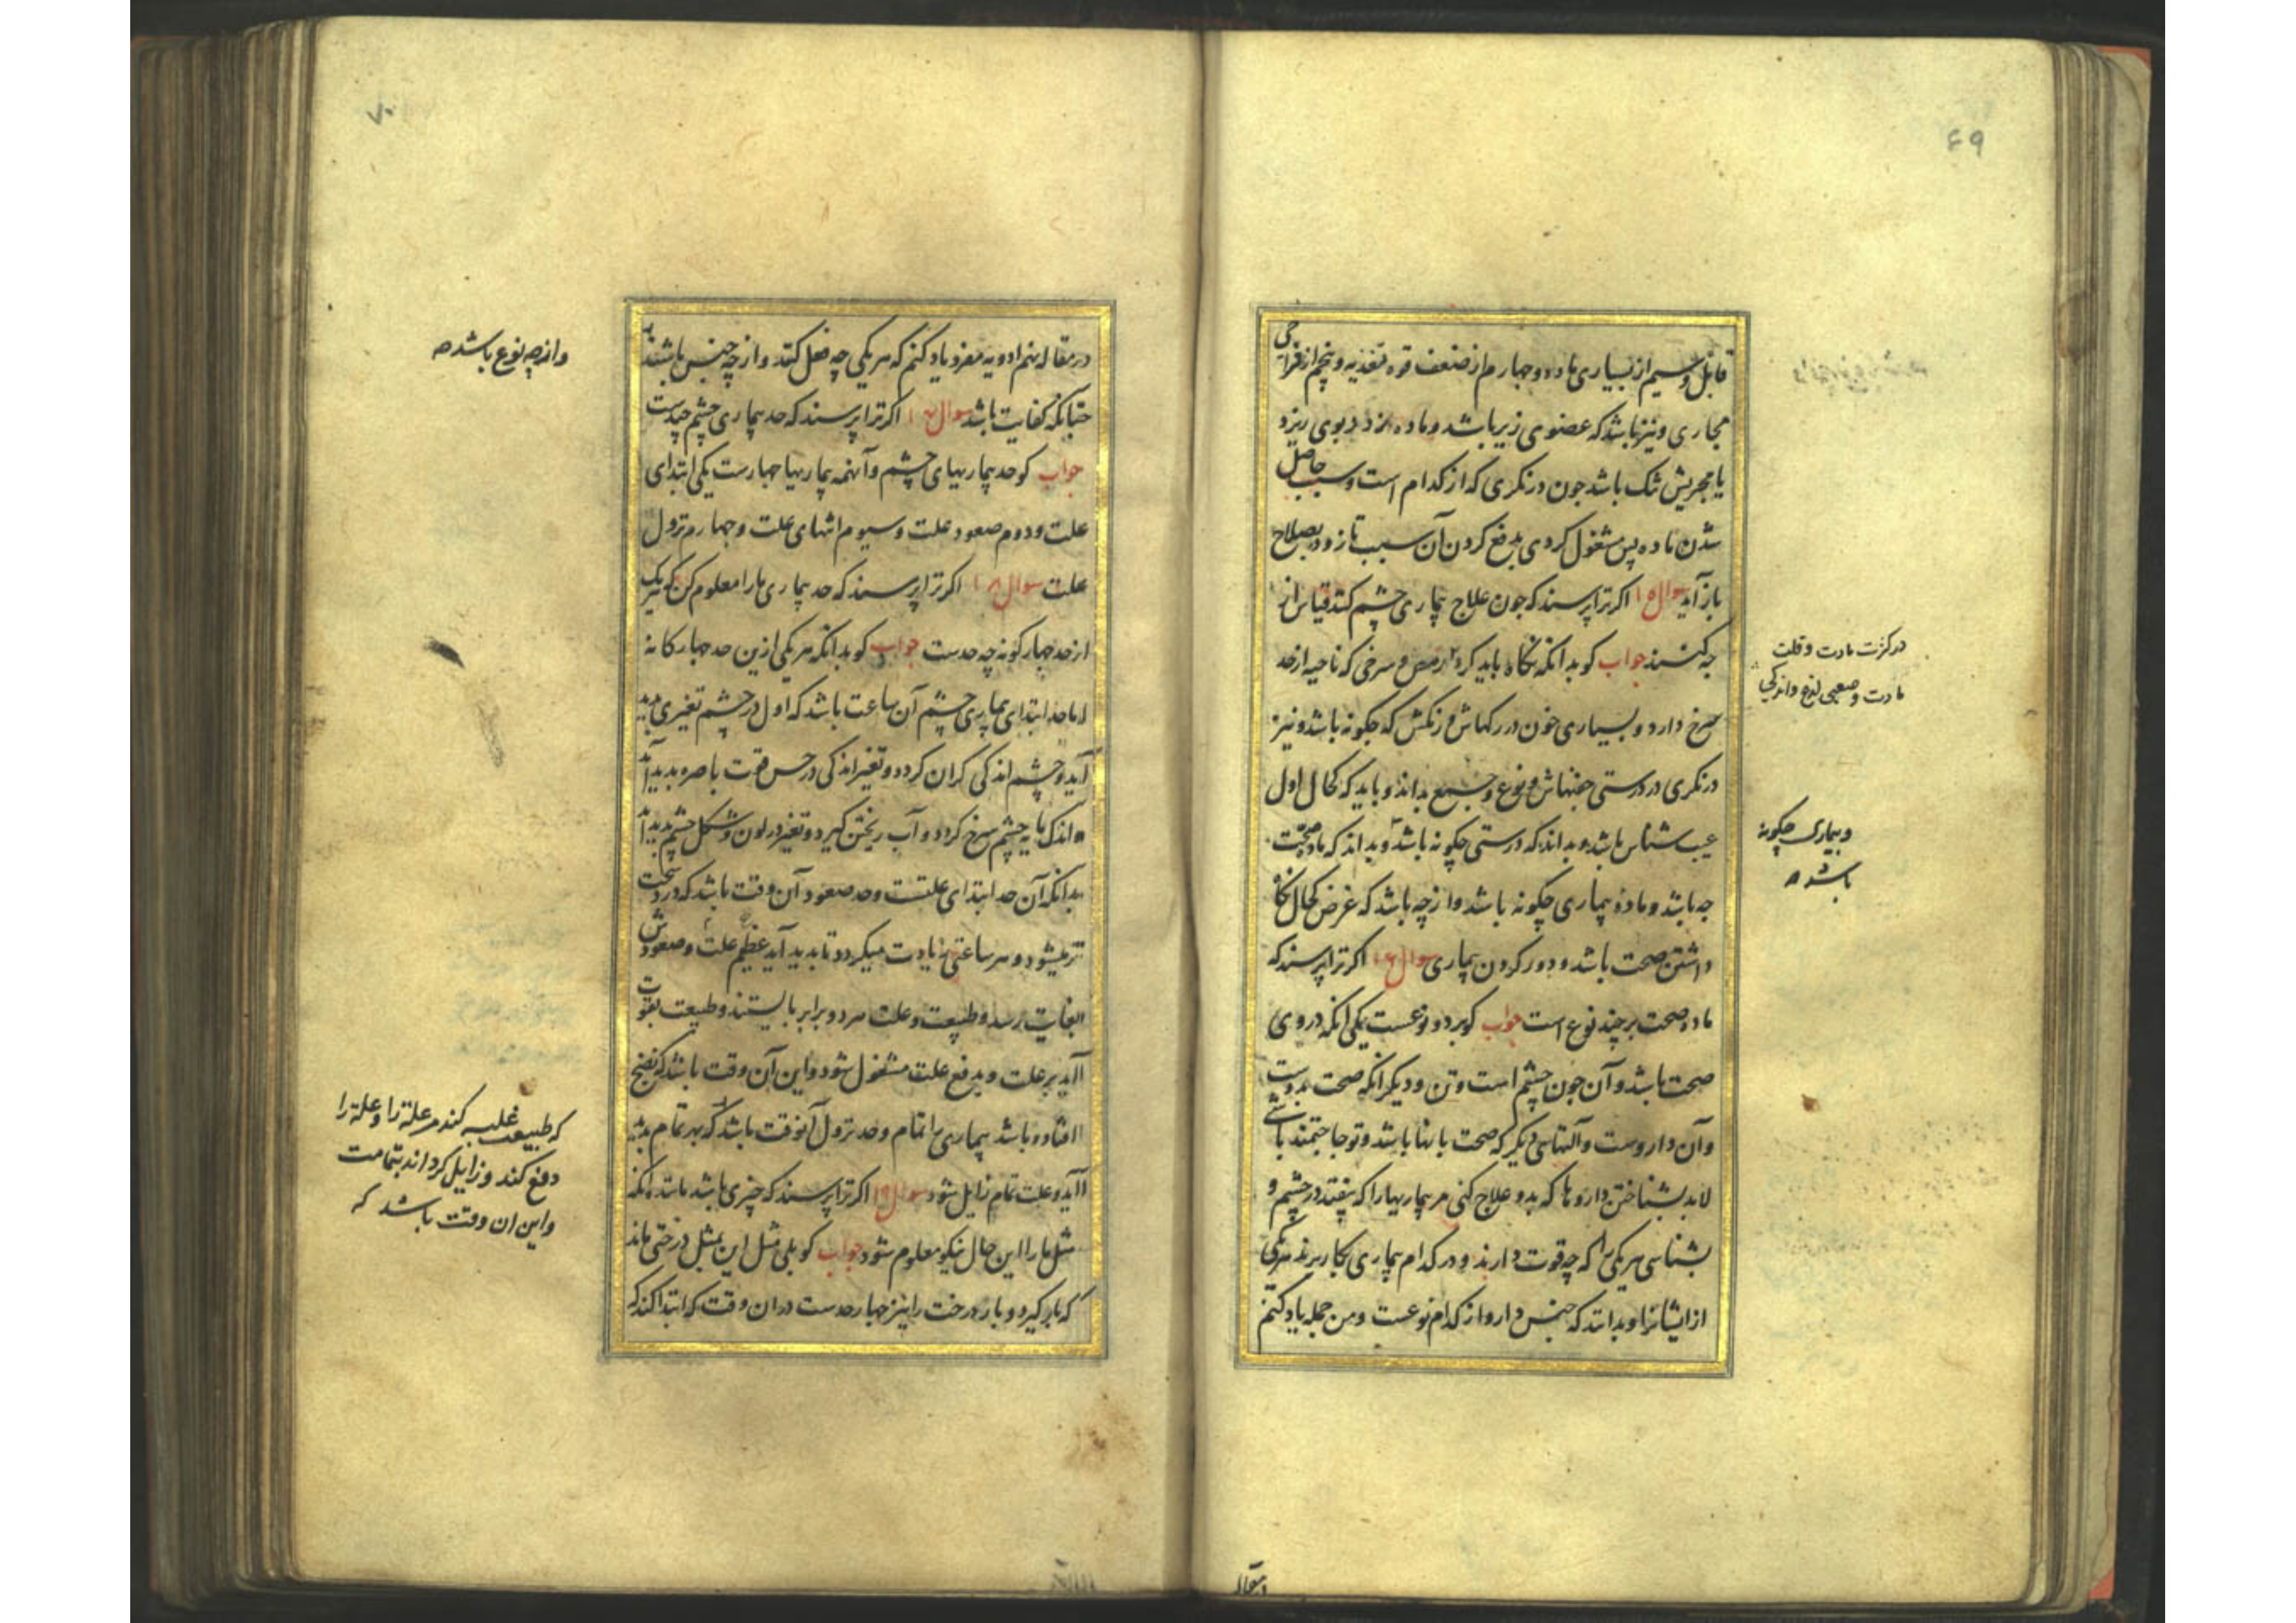 ۶۹
قابل و سیم از بسیاری ماده و چهارم از ضعف قوه تغذیه و پنجم از فراخی
مجاری و نیز باشد که عضوی زیر باشد و ماده بوی ریزد
یا مجریش تنک باشد جون درنکری که از کدام است و سبب حاصل
شدن ماده پس مشغول کردی بدفع کردن آن سبب تا زود بصلاح
باز آید سوال ۱۵ اکر ترا پرسند که جون علاج بیماری چشم کنند قیاس از
چه کنند جواب کو بدانکه نکاه باید کرد سرخی که ناحیه از خد
سرخ دارد و بسیاری خون در رکهاش و رنکش که چکونه باشد و نیز
درنکری در درستی و نوع بداند و باید که کحال اول
عیب شناس باشد و بداند که درستی چکونه باشد و بداند که ماده صحت
چه باشد و ماده بیماری چکونه باشد و از چه باشد که غرض کحال نکاه
داشتن صحت باشد و دور کردن بیماری سوال ۱۶ اکر ترا پرسند که
ماده صحت بر چند نوع است جواب کو بر دو نوعست یکی انکه در وی
صحت باشد و آن جون چشم است و تن و دیکر انکه صحت بدوست
و آن داروست و آلتهاء دیکر که صحت بانها باشد و تو حاجتمند باشی
لابد بشناختن داروها که بدو علاج کنی مر بیماریها را که بیفتد در چشم و
بشناسی هر یکی را که چه قوت دارند و در کدام بیماری بکار برند هر یکی
از ایشانرا و بدانند که جنس دارو از کدام نوعست و من جمله یاد کنم
در کثرت مادت و قلت
مادت و صعبی لذع و اندکی
و بیماری چکونه
باشد
در مقاله
۷۰
در مقاله نهم ادویه مفرد یاد کنم که هر یکی چه فعل کند و از چه جنس باشند
چنانکه کفایت باشد سوال ۱۷ اکر ترا پرسند که حد بیماری چشم چندست
جواب کو حد بیماریهای چشم و آنهمه بیماریها چهارست یکی ابتدای
علت و دوم صعود علت و سیوم انتهای علت و چهارم نزول
علت سوال ۱۸ اکر ترا پرسند که حد بیماری ما را معلوم کن که هر یک
از حد چهار کونه چه حدست جواب کو بدانکه هر یکی ازین حد چهار کانه
اما حد ابتدای بیماری چشم آن ساعت باشد که اول در چشم تغیری پدید
آید و چشم اندکی کران کردد و تغیر اندکی در حس قوت باصره پدید آید
و اندک مایه چشم سرخ کردد و آب ریختن کیرد و تغیر در لون و شکل چشم پدید آید
بدانکه آن حد ابتدای علتست و حد صعود آن وقت باشد که درد سخت
تر میشود و هر ساعتی زیادت میکردد تا پدید آید عظم علت و صعودش
بغایت رسد و طبیعت و علت هر دو برابر بایستند و طبیعت بقوت
آید بر علت و بدفع علت مشغول شود و این آن وقت باشد که نضج
افتاده باشد بیماری را تمام و حد نزول آنوقت باشد که بهر تمام پدید
آید و علت تمام زایل شود سوال ۱۹ اکر ترا پرسند که چیزی باشد مانند آنکه
مثل ما را این حال نیکو معلوم شود جواب کو بلی مثل این بمثل درختی ماند
که بار کیرد و بار درخت را نیز چهار حدست در ان وقت که ابتدا کند که
و از چه نوع باشد
که طبیعت غلبه کند مر علة را و علة را
دفع کند و زایل کرداند بتمامت
و این ان وقت باشد که